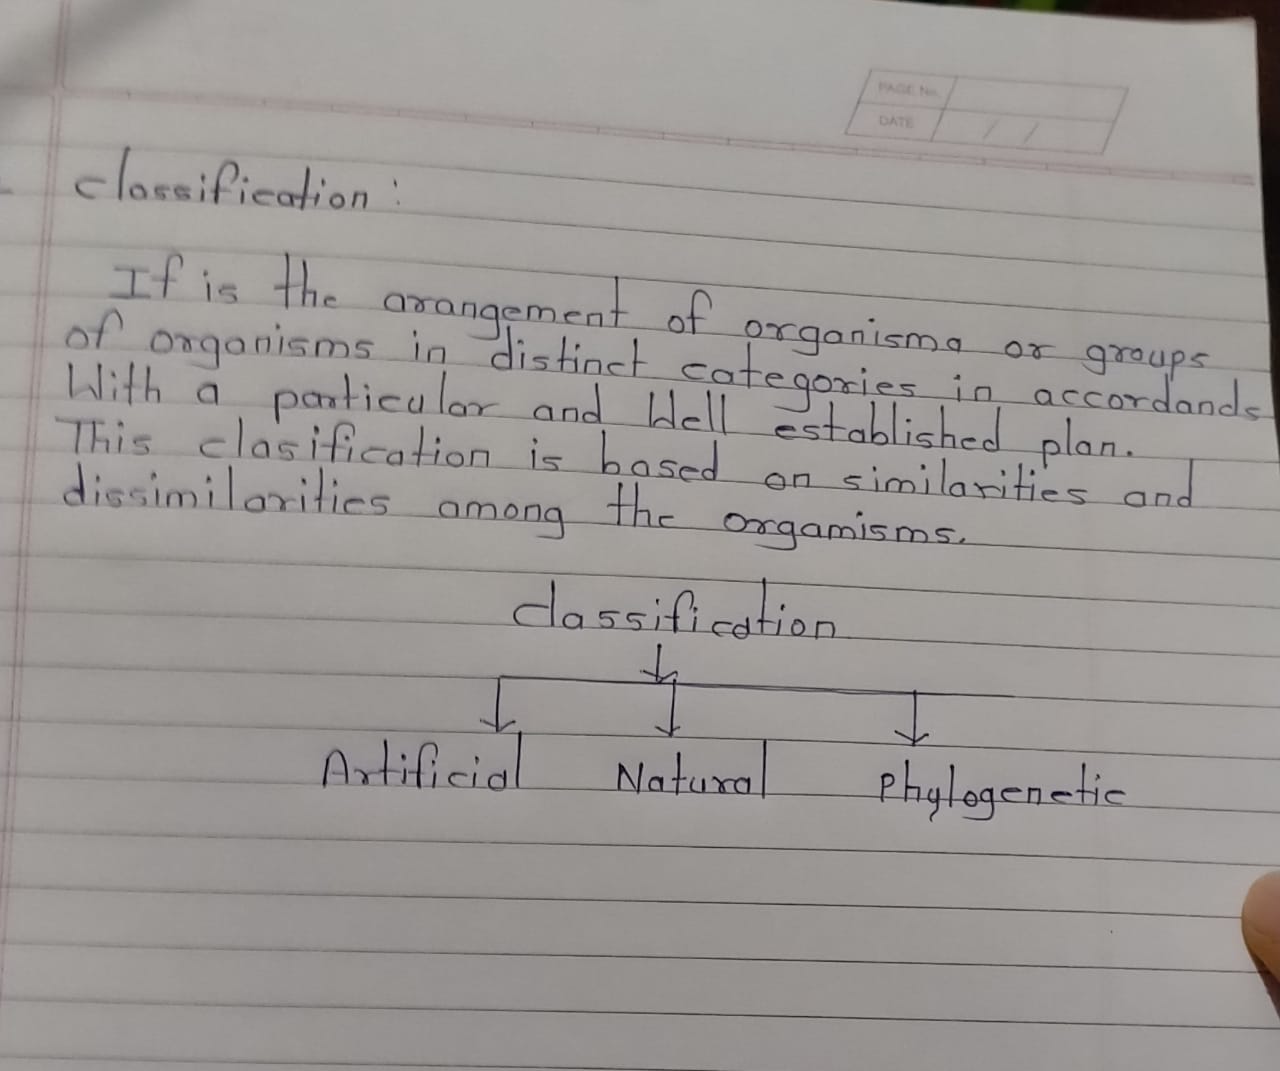 PAGE No.
DATE / /
classification :
If is the arangement of organisma or groups
of organisms in distinct categories in accordands
With a particular and Well established plan.
This clasification is based on similarities and
dissimilarities among the orgamisms.
classification
Artificial Natural Phylogenetic